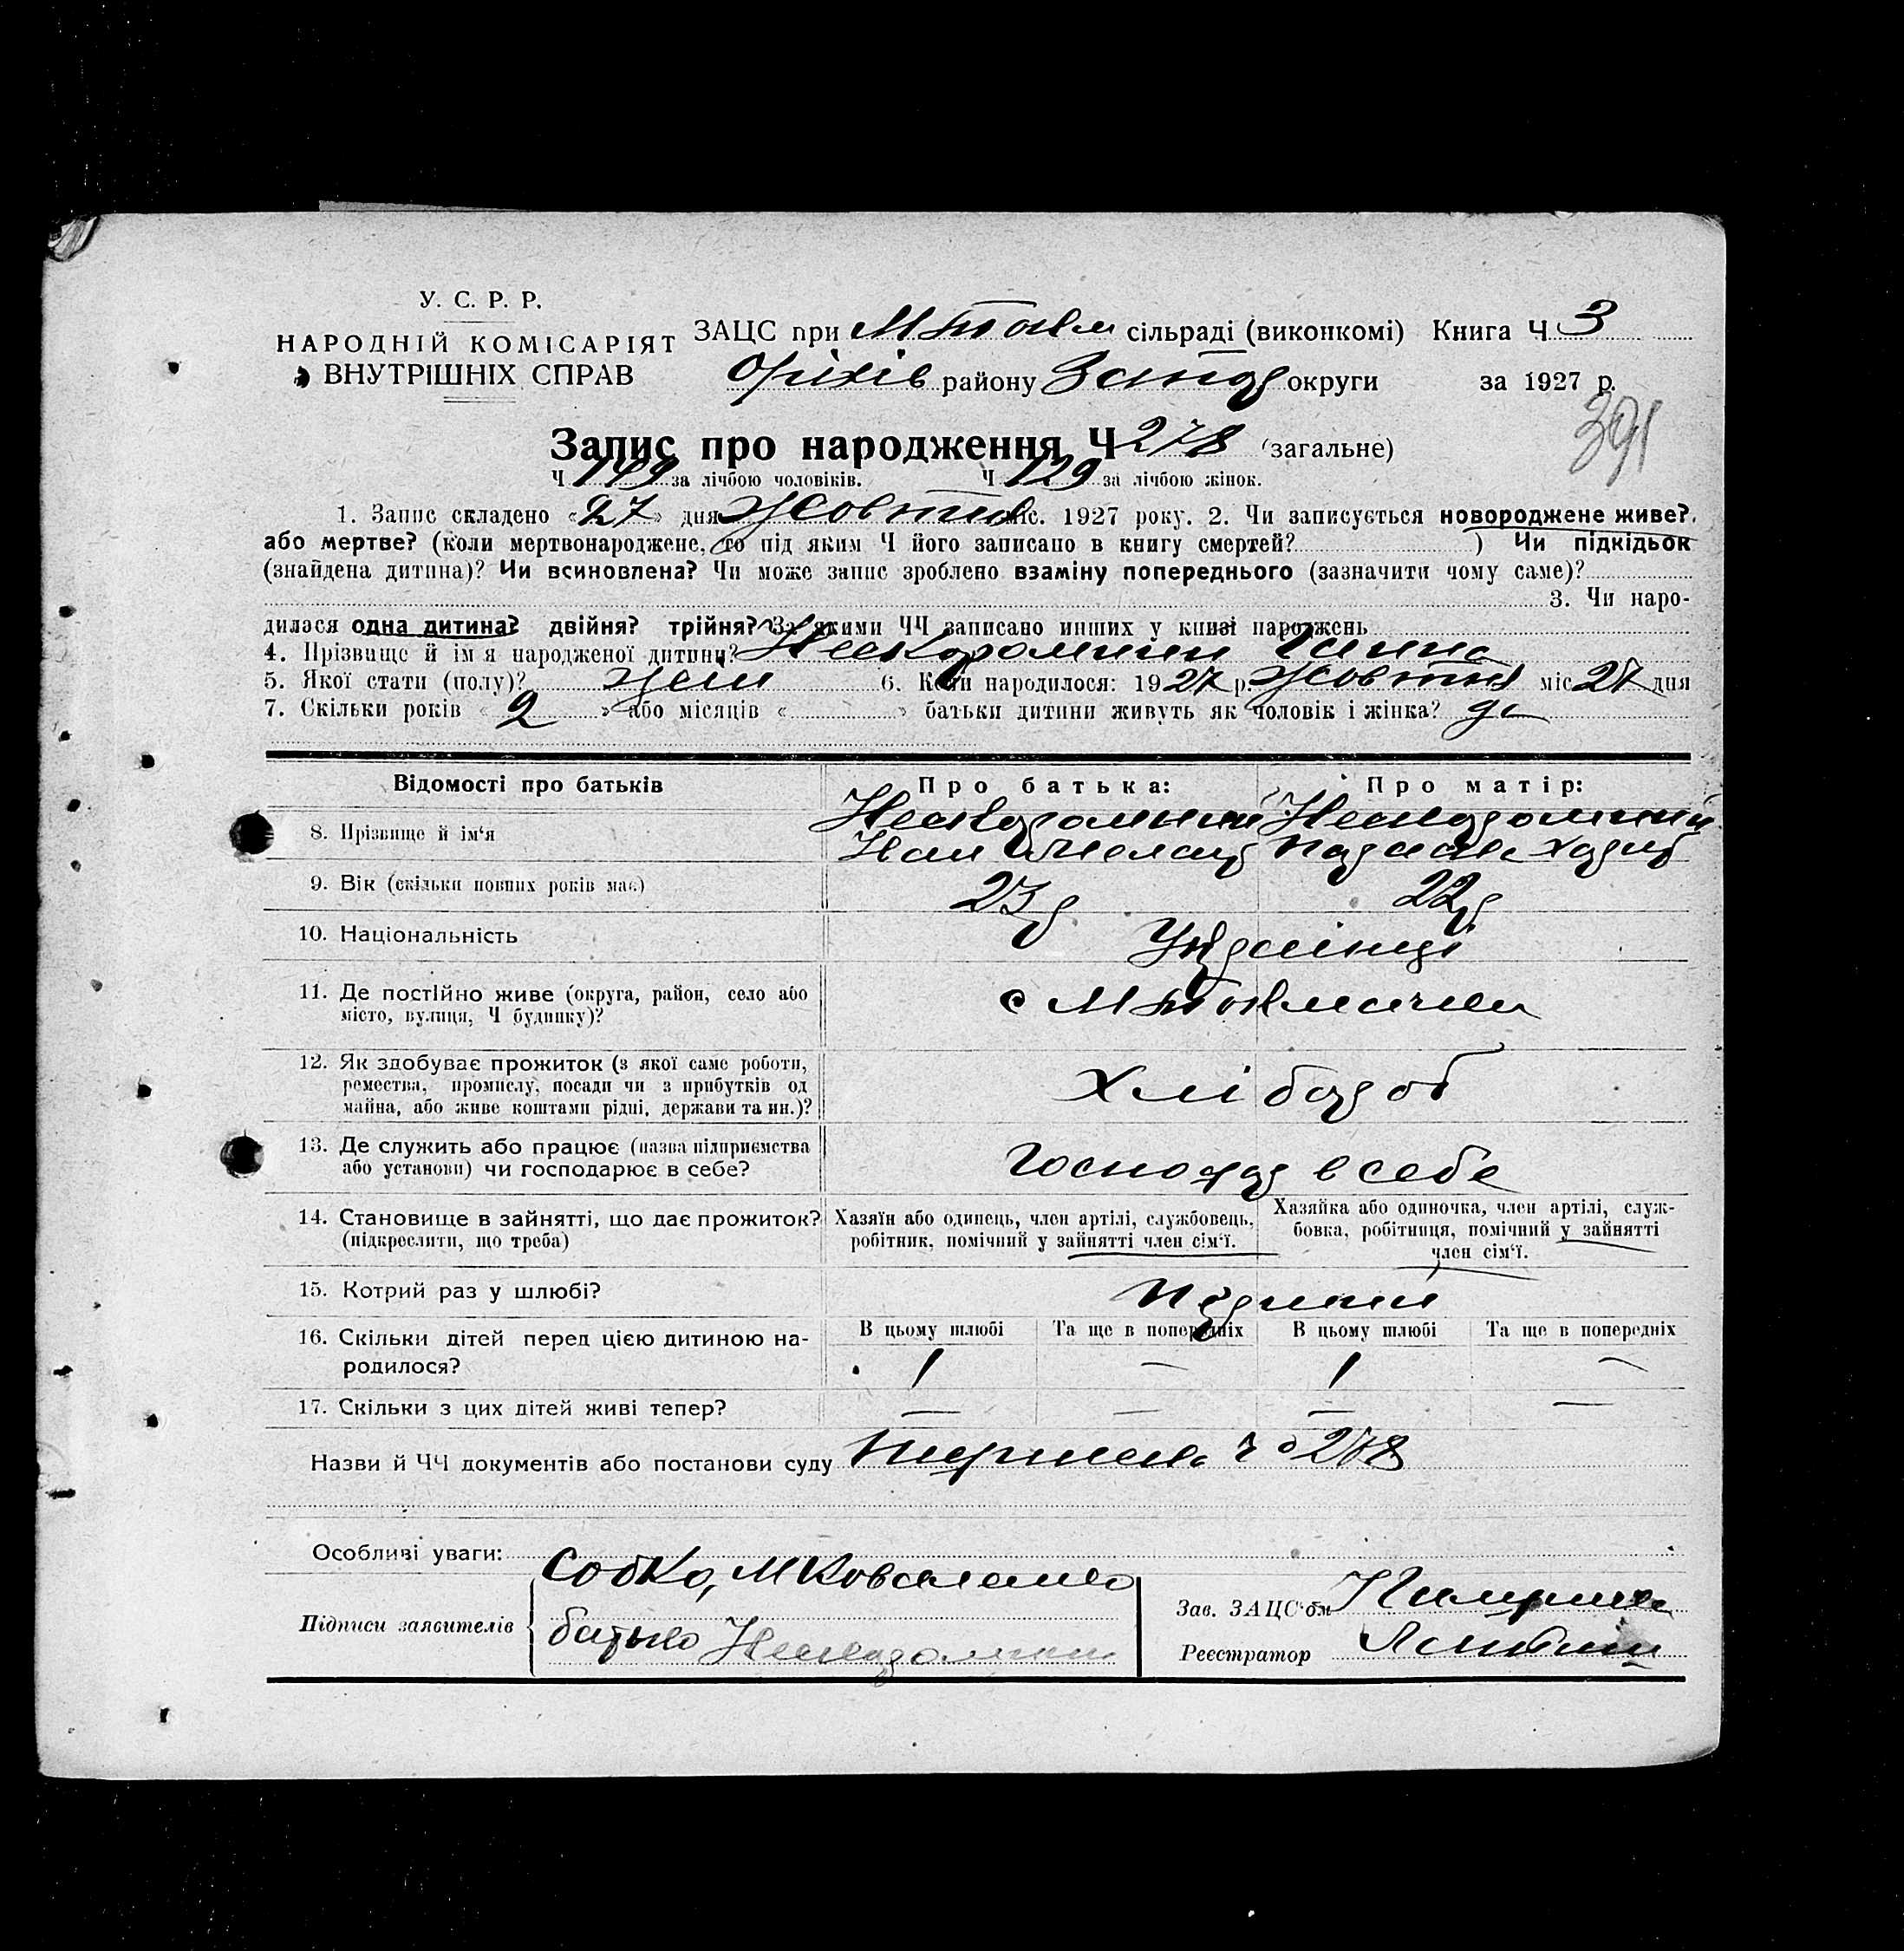 У. С. Р. Р.
НАРОДНІЙ КОМІСАРІЯТ
ВНУТРІШНІХ СПРАВ
ЗАЦС при М Токм сільраді (виконкомі) Книга Ч 3
Оріхів району Запор округи за 1927 р.
391
Запис про народження Ч 278 (загальне)
Ч 149 за лічбою чоловіків. Ч 129 за лічбою жінок.
1. Запис складено «27» дня Жовтня міс. 1927 року. 2. Чи записується новороджене живе?,
або мертве? (коли мертвонароджене, то під яким Ч його записано в книгу смертей? ) Чи підкідьок
(знайдена дитина)? Чи всиновлена? Чи може запис зроблено взаміну попереднього (зазначити чому саме)?
3. Чи наро-
дилася одна дитина? двійня? трійня? За якими ЧЧ записано инших у книзі народжень
4. Прізвище й ім'я народженої дитини? Нескоромний
5. Якої стати (полу)? жен 6. Коли народилося: 1927 р. Жовтня міс 27 дня
7. Скільки років « 2 » або місяців « » батьки дитини живуть як чоловік і жінка? да
Відомості про батьків Про батька: Про матір:
8. Прізвище й ім'я Нескоромний Нескоромний
9. Вік (скільки повних років має) 23 р 22 р
10. Національність Українці
11. Де постійно живе (округа, район, село або
місто, вулиця, Ч будинку)? с М Токмачка
12. Як здобуває прожиток (з якої саме роботи,
ремества, промислу, посади чи з прибутків од
майна, або живе коштами рідні, держави та ин.)? Хлібороб
13. Де служить або працює (назва підприємства
або установи) чи господарює в себе? Господар в себе
14. Становище в зайнятті, що дає прожиток?
(підкреслити, що треба)
Хазяїн або одинець, член артілі, службовець,
робітник, помічний у зайнятті член сім'ї.
Хазяйка або одиночка, член артілі, служ-
бовка, робітниця, помічний у зайнятті
член сім'ї.
15. Котрий раз у шлюбі? Первий
16. Скільки дітей перед цією дитиною на-
родилося?
В цьому шлюбі Та ще в попередніх В цьому шлюбі Та ще в попередніх
1 — 1 —
17. Скільки з цих дітей живі тепер? — — — —
Назви й ЧЧ документів або постанови суду 278
Особливі уваги:
Підписи заявителів М Коваленко
батько Нескоромний
Зав. ЗАЦС'ом
Реєстратор